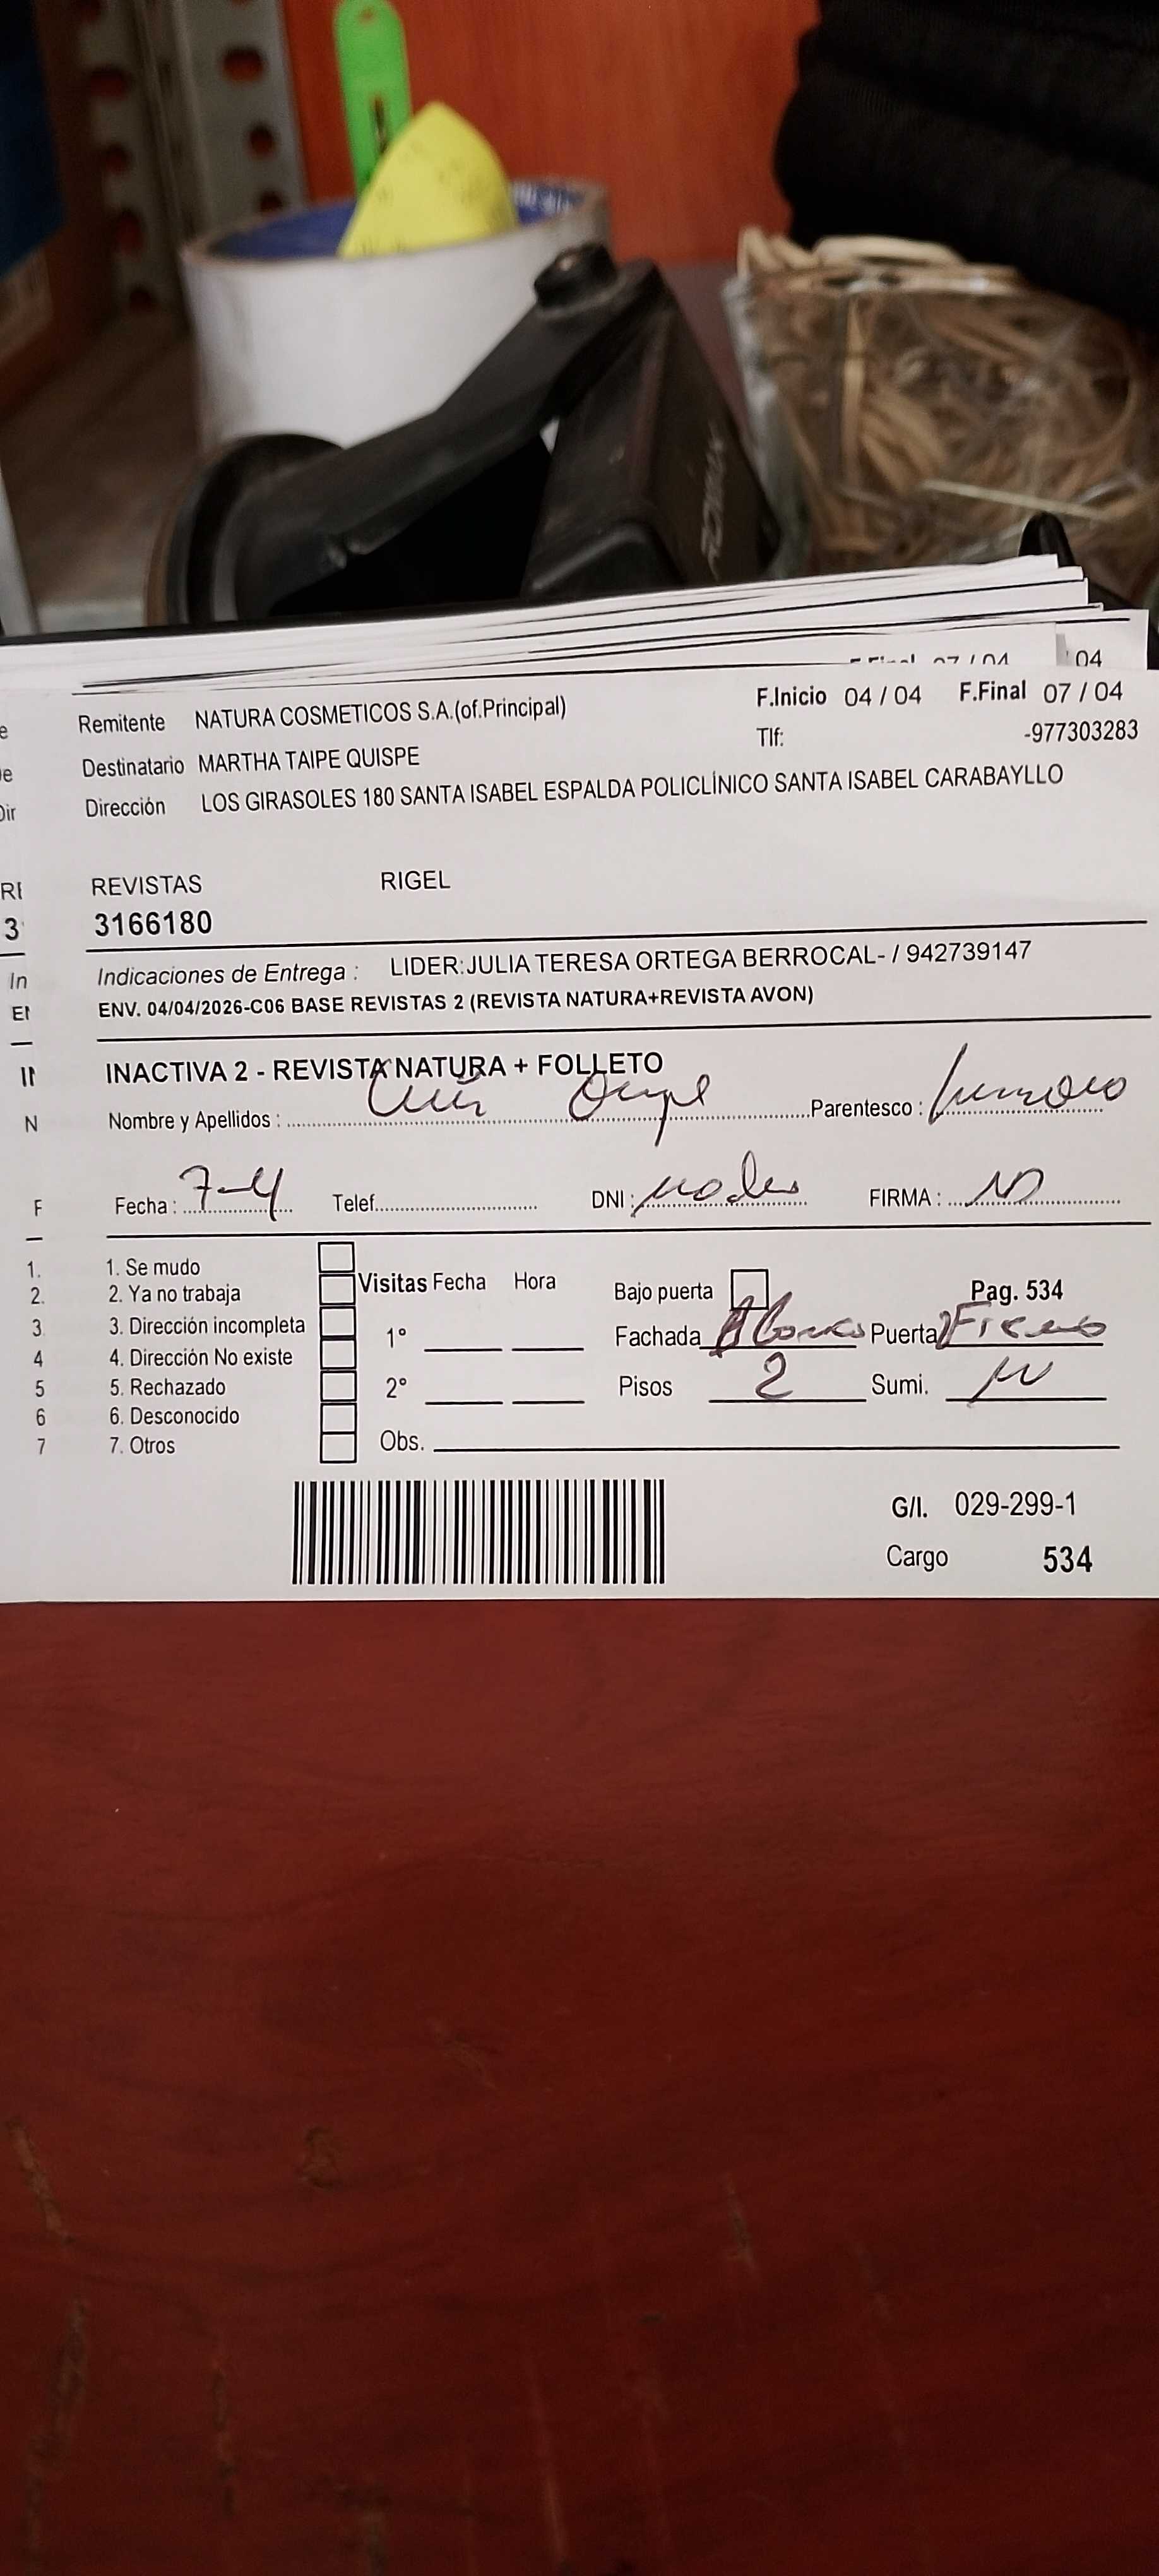 F.Final 07 / 04
04
Remitente NATURA COSMETICOS S.A.(of.Principal) F.Inicio 04 / 04 F.Final 07 / 04
Destinatario MARTHA TAIPE QUISPE Tlf: -977303283
Dirección LOS GIRASOLES 180 SANTA ISABEL ESPALDA POLICLÍNICO SANTA ISABEL CARABAYLLO
REVISTAS RIGEL
3166180
Indicaciones de Entrega : LIDER:JULIA TERESA ORTEGA BERROCAL- / 942739147
ENV. 04/04/2026-C06 BASE REVISTAS 2 (REVISTA NATURA+REVISTA AVON)
INACTIVA 2 - REVISTA NATURA + FOLLETO
Nombre y Apellidos : Parentesco :
Fecha : 7-4 Telef. DNI : FIRMA :
1. Se mudo
2. Ya no trabaja Visitas Fecha Hora Bajo puerta Pag. 534
3. Dirección incompleta 1° Fachada Puerta
4. Dirección No existe
5. Rechazado 2° Pisos 2 Sumi.
6. Desconocido
7. Otros Obs.
G/I. 029-299-1
Cargo 534